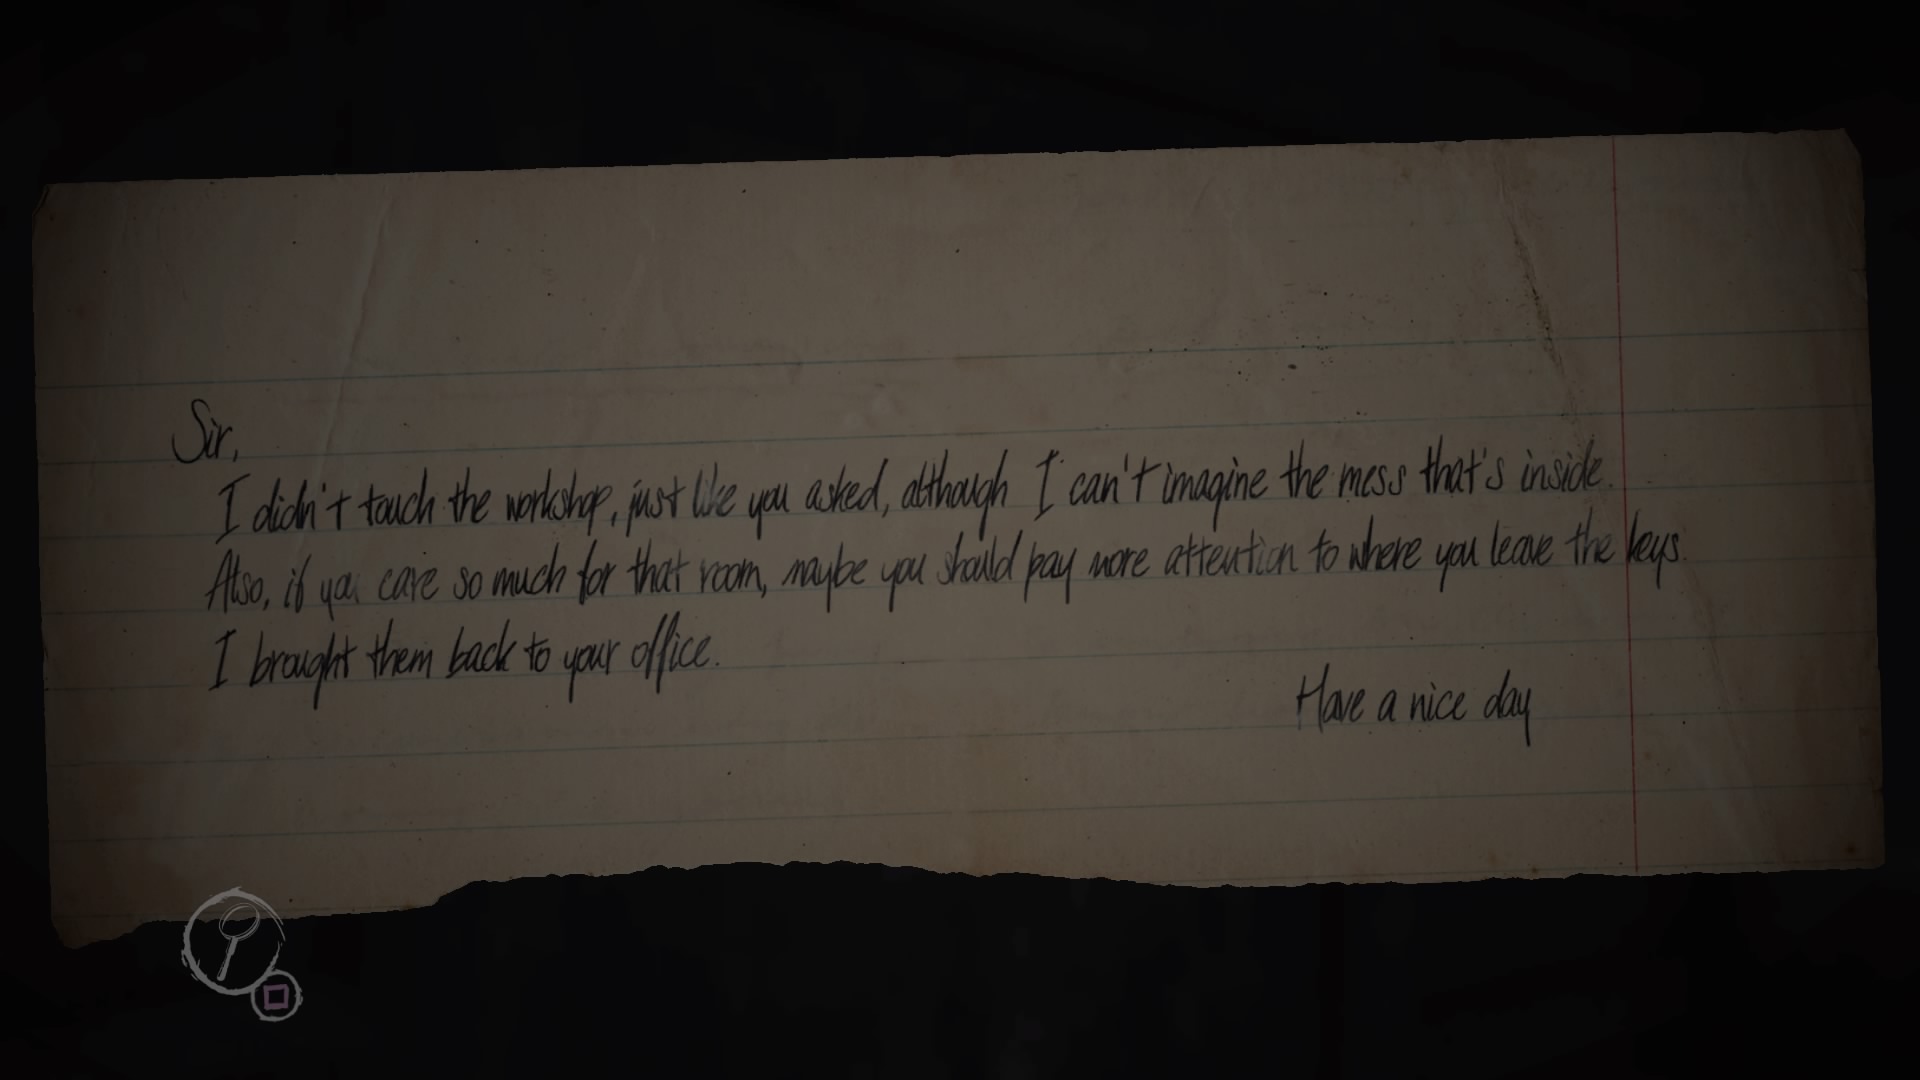 Sir,
I didn't touch the workshop, just like you asked, although I can't imagine the mess that's inside.
Also, if you care so much for that room, maybe you should pay more attention to where you leave the keys.
I brought them back to your office.
Have a nice day